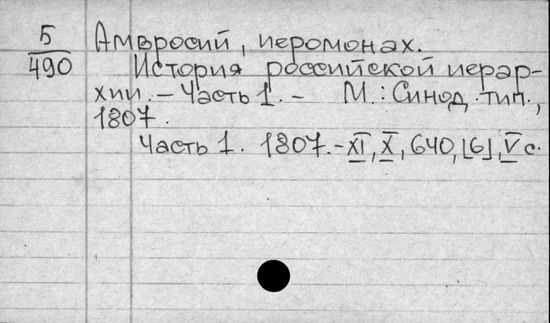 5
490
Амвросий, иеромонах.
История российской иерар-
хии. – Часть 1. – М.: Синод. тип.,
1807.
Часть 1. 1807. – XI, X, 640, [6], V с.